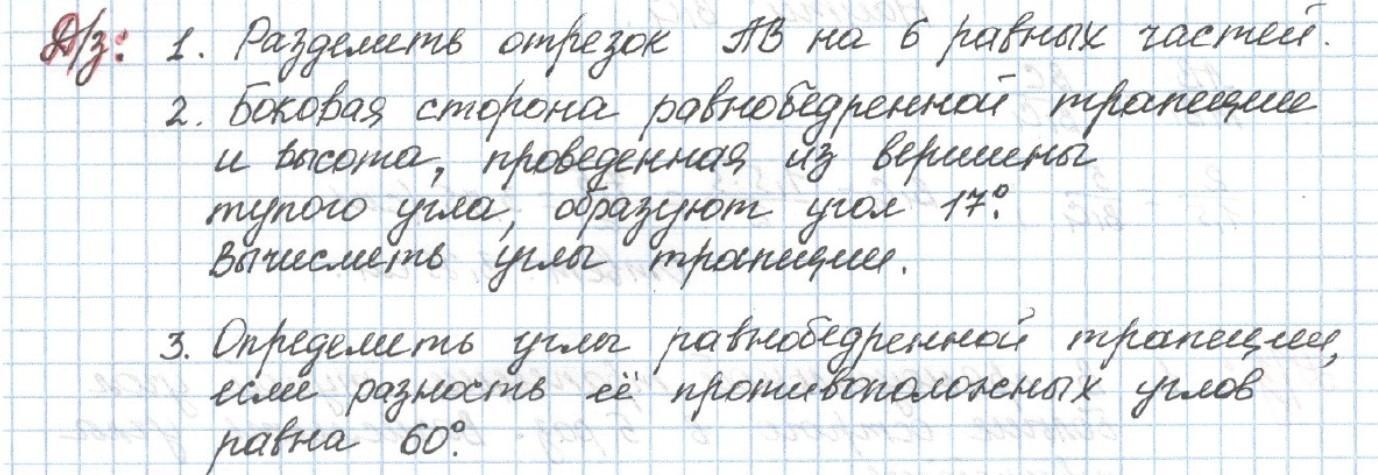 Д/з: 1. Разделить отрезок АВ на 6 равных частей.
2. Боковая сторона равнобедренной трапеции
и высота, проведенная из вершины
тупого угла, образуют угол 17°.
Вычислить углы трапеции.
3. Определить углы равнобедренной трапеции,
если разность её противоположных углов
равна 60°.